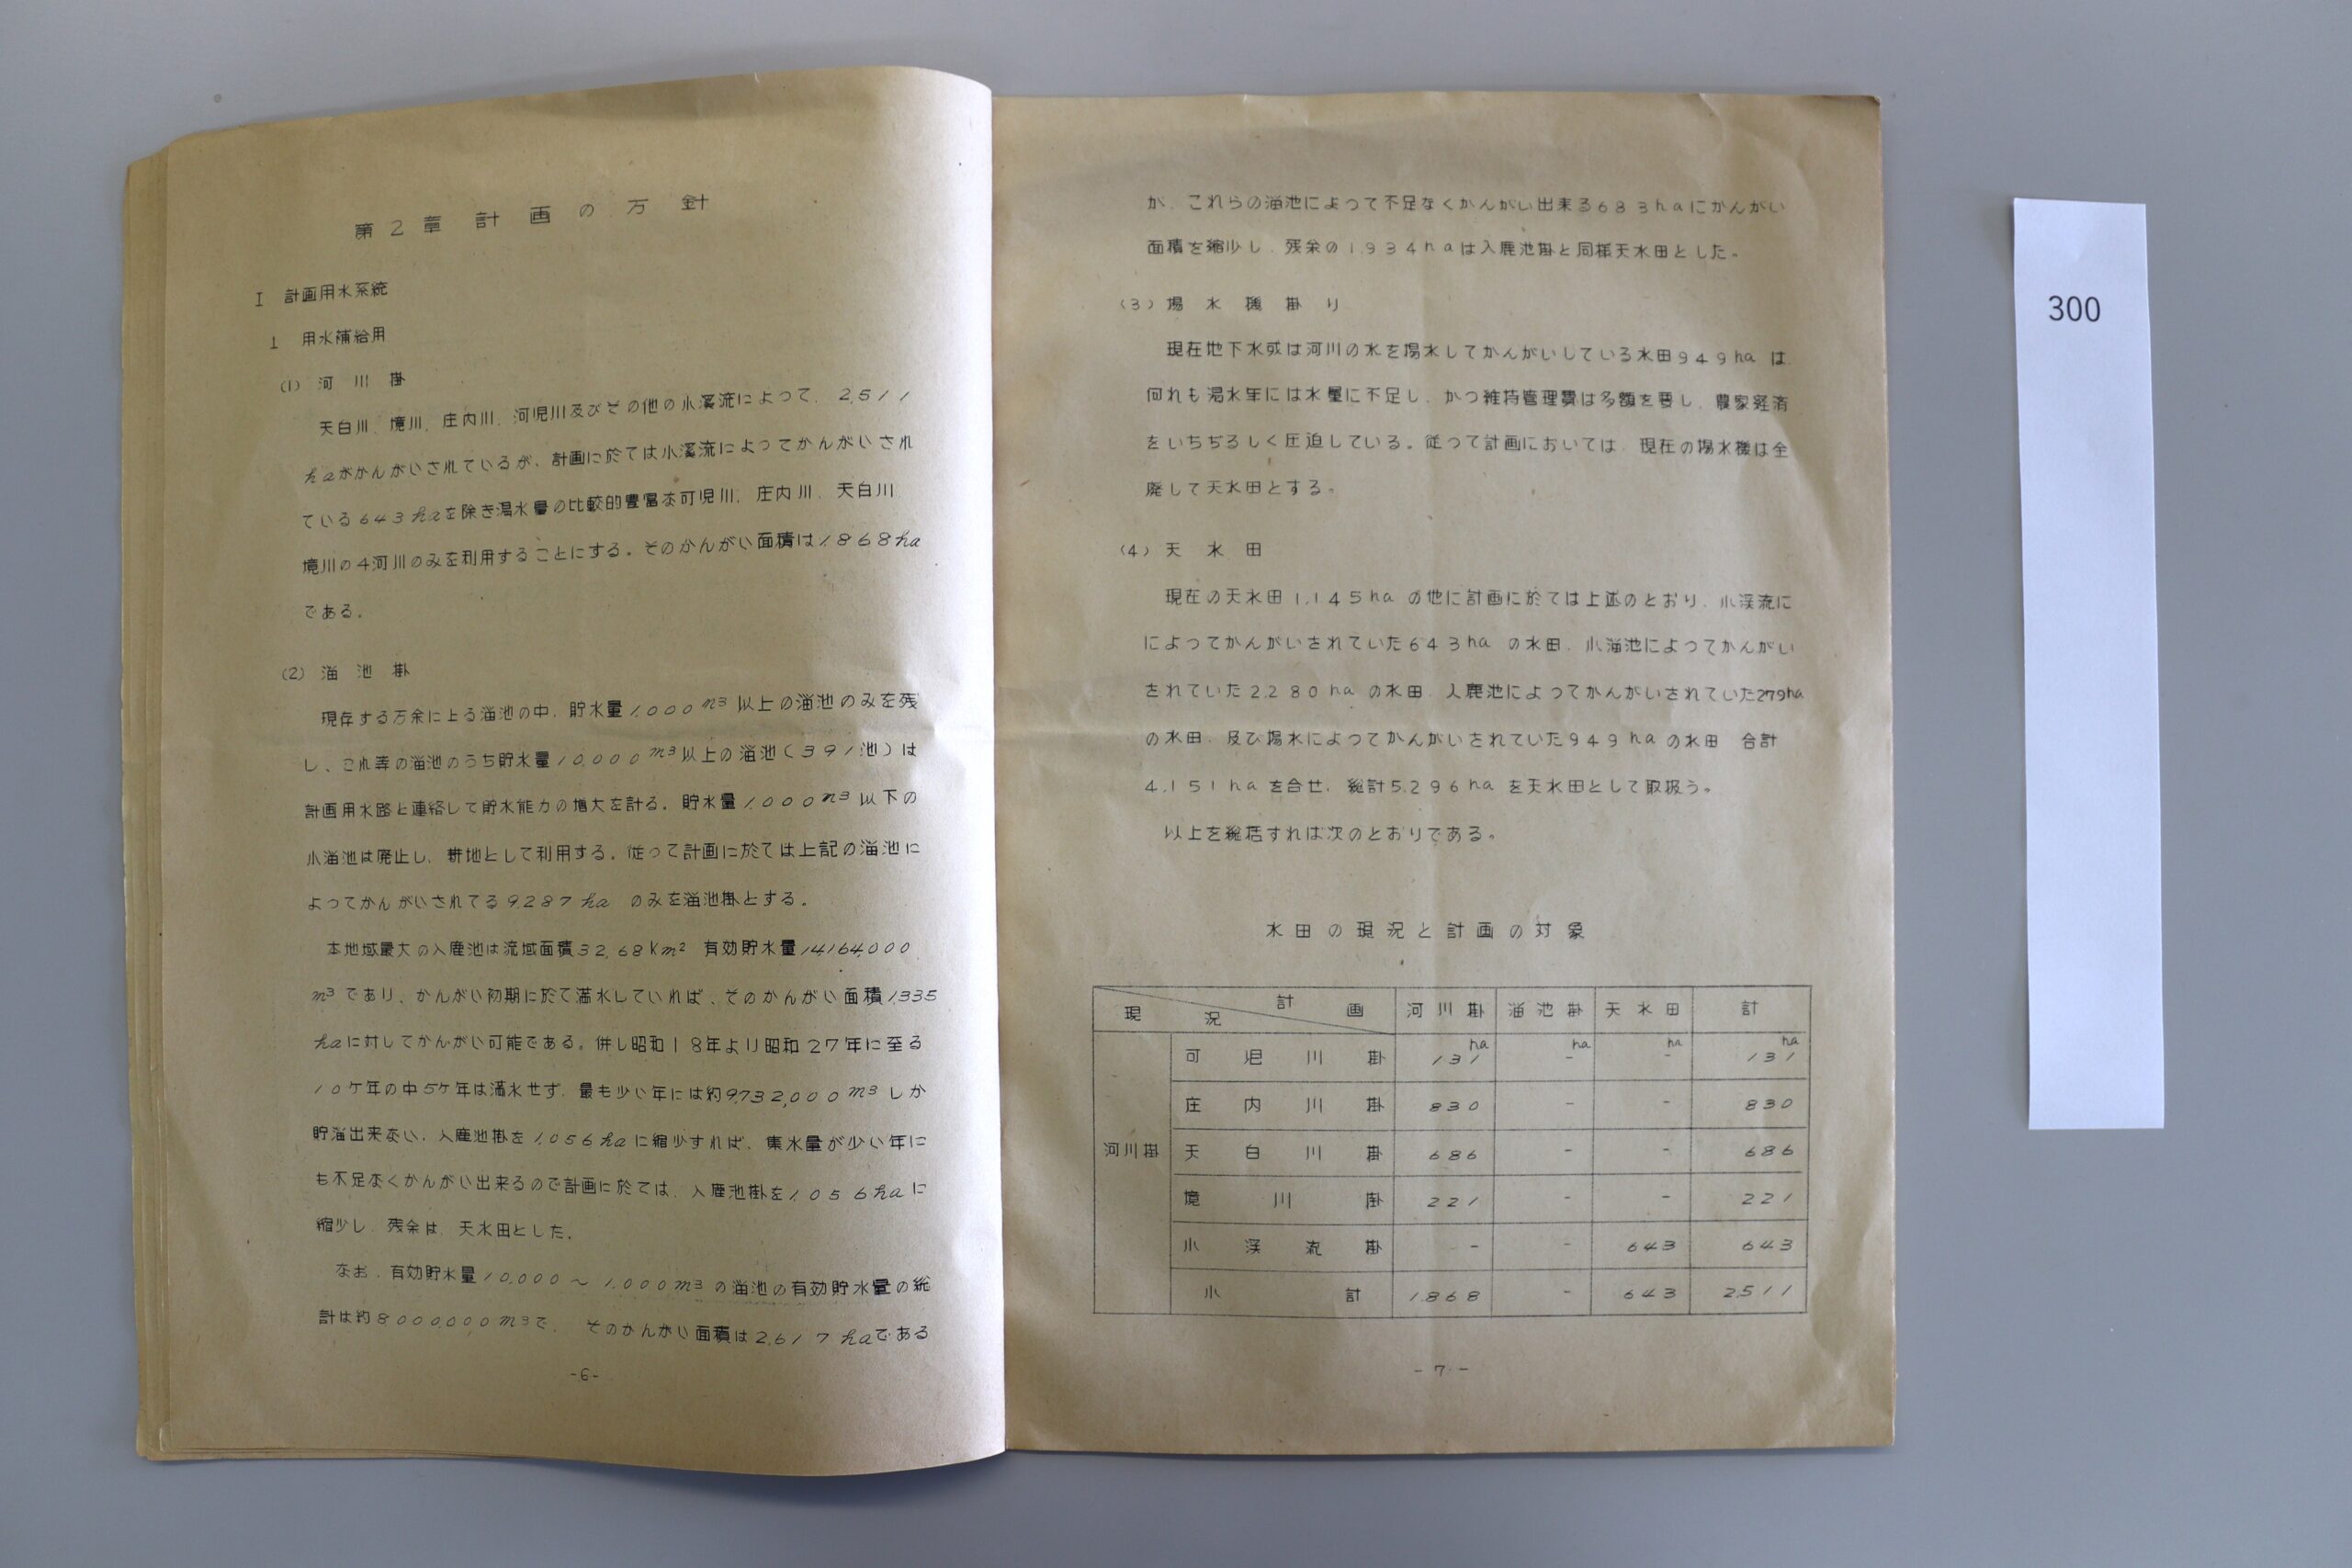 第2章 計画の方針
I 計画用水系統
1 用水補給用
(1) 河川掛
天白川、境川、庄内川、河児川及びその他の小溪流によって、2,511
haがかんがいされているが、計画に於ては小溪流によってかんがいされ
ている643haを除き渇水量の比較的豊富な可児川、庄内川、天白川
境川の4河川のみを利用することにする。そのかんがい面積は1,868ha
である。
(2) 溜池掛
現存する万余に上る溜池の中、貯水量1,000m³以上の溜池のみを残
し、これ等の溜池のうち貯水量10,000m³以上の溜池(391池)は
計画用水路と連絡して貯水能力の増大を計る。貯水量1,000m³以下の
小溜池は廃止し、耕地として利用する。従って計画に於ては上記の溜池に
よってかんがいされてる9,287ha のみを溜池掛とする。
本地域最大の入鹿池は流域面積32.68Km² 有効貯水量14,164,000
m³であり、かんがい初期に於て満水していれば、そのかんがい面積1,335
haに対してかんがい可能である。併し昭和18年より昭和27年に至る
10ケ年の中5ケ年は満水せず、最も少い年には約9,732,000m³しか
貯溜出来ない、入鹿池掛を1,056haに縮少すれば、集水量が少い年に
も不足なくかんがい出来るので計画に於ては、入鹿池掛を1,056haに
縮少し、残余は、天水田とした。
なお、有効貯水量10,000〜1,000m³の溜池の有効貯水量の総
計は約8,000,000m³で、そのかんがい面積は2,617haである
-6-
が、これらの溜池によって不足なくかんがい出来る683haにかんがい
面積を縮少し、残余の1,934haは入鹿池掛と同様天水田とした。
(3) 揚水機掛り
現在地下水或は河川の水を揚水してかんがいしている水田949ha は
何れも渇水年には水量に不足し、かつ維持管理費は多額を要し、農家経済
をいちぢるしく圧迫している。従って計画においては、現在の揚水機は全
廃して天水田とする。
(4) 天水田
現在の天水田1,145ha の他に計画に於ては上述のとおり、小渓流に
によってかんがいされていた643ha の水田、小溜池によってかんがい
されていた2,280ha の水田、入鹿池によってかんがいされていた279ha
の水田、及び揚水によってかんがいされていた949ha の水田 合計
4,151haを合せ、総計5,296haを天水田として取扱う。
以上を総括すれば次のとおりである。
水田の現況と計画の対象
現況 計画 河川掛 溜池掛 天水田 計
河川掛 可児川掛 131ha -ha -ha 131ha
庄内川掛 830 - - 830
天白川掛 686 - - 686
境川掛 221 - - 221
小渓流掛 - - 643 643
小計 1,868 - 643 2,511
-7-
300